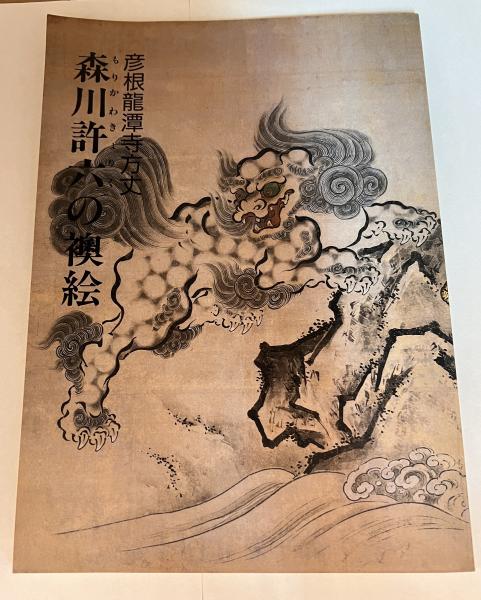 彦根龍潭寺方丈
森川許六の襖絵
もりかわきょりく